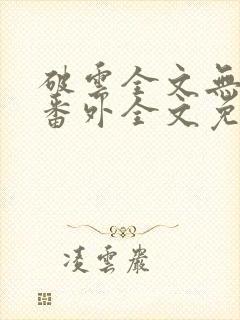 破雲全文無
番外全文免
凌雲巖